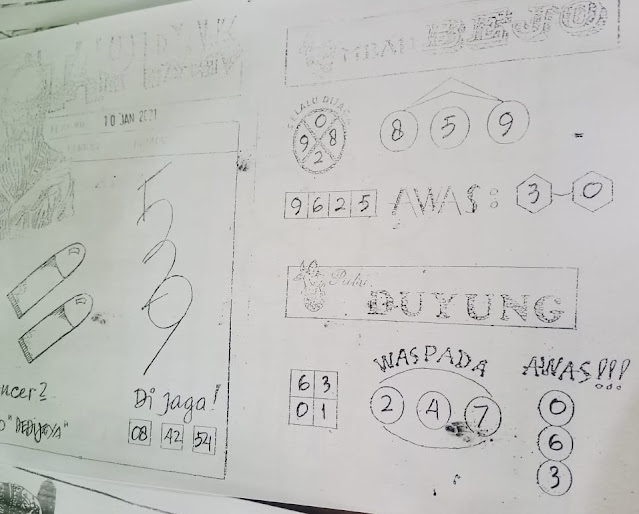 10 JAN 2021
5
3
9
Di jaga!
08 42 54
MBAH BEJO
SELALU DIJAGA
0
9 8
2
8 5 9
9 6 2 5 AWAS: 3 - 0
Putri
DUYUNG
WASPADA
6 3
0 1
2 4 7
AWAS!!!
0
6
3